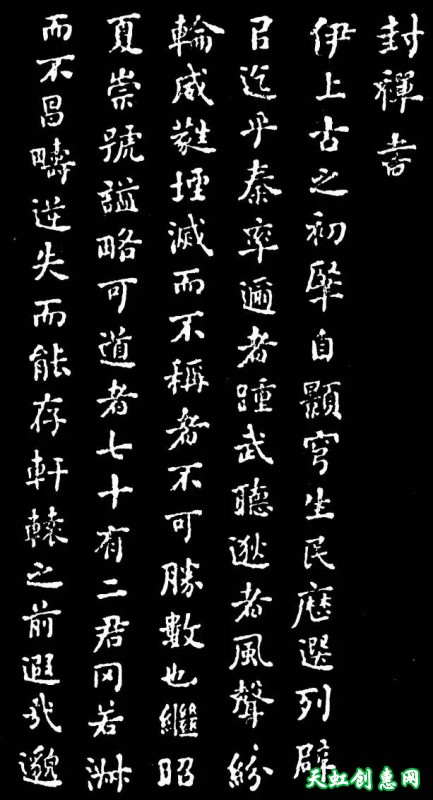 封禪書
伊上古之初肇自顥穹生民歷選列辟
㠯迄乎秦率邇者踵武聽逖者風聲紛
輪威蕤堙滅而不稱者不可勝數也繼昭
夏崇號謚略可道者七十有二君罔若淑
而不昌疇逆失而能存軒轅之前遐哉邈
天虹创惠网